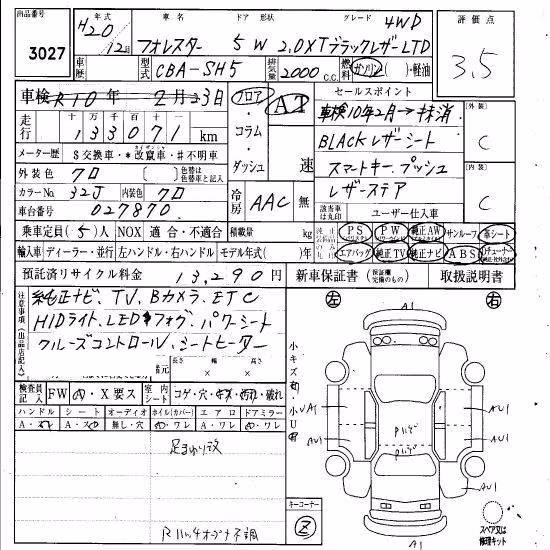 商品番号
3027
年式 車名 ドア 形状 グレード 4WD
H20 12月 フォレスター 5 W 2.0XTブラックレザーLTD
評価点
3.5
車歴 型式 CBA-SH5 排気量 2000 c.c. 燃料 ガソリン ( )・軽油
車検 R10年 2月23日
フロア・コラム・ダッシュ
AT
速
セールスポイント
車検10年2月→抹消
BLACKレザーシート
スマートキー、プッシュ
レザーステア
外装 C
内装 C
走行 十万千百十一
133071 km
メーター歴 $交換車・*改竄車・#不明車
外装色 クロ 〔 〕 色替は色替車と記入
カラーNo 32J 内装色 クロ
車台番号 027870
冷房 AAC 無
該当車は丸印 ユーザー仕入車
乗車定員(5)人 NOX 適合・不適合 積載量 kg
PS PW 純正AW サンルーフ 革シート
輸入車 ディーラー・並行 左ハンドル・右ハンドル モデル年式( )年
エアバッグ 純正TV 純正ナビ ABS
預託済リサイクル料金 13,290円
新車保証書 (保証継続可能なもの) 取扱説明書
注意事項(出品店記入)
純正ナビ、TV、Bカメラ、ETC
HIDライト、LEDフォグ、パワーシート
クルーズコントロール、シートヒーター
長さ 幅 高さ
× ×
左 右
小キズ有 小U有
検査員記入 FW ・X要ス 室内シート コゲ・穴・キズ・汚れ・破れ
ハンドル シート オーディオ ホイル(カバー) エアロ ドアミラー
A・ A・ 無し・穴 ・ワレ A・ワレ ・ワレ
足まわり改
キーコーナー
②
スペア又は修理キット
A1
A1
UA1
AU1
AU1
AU1
AU1